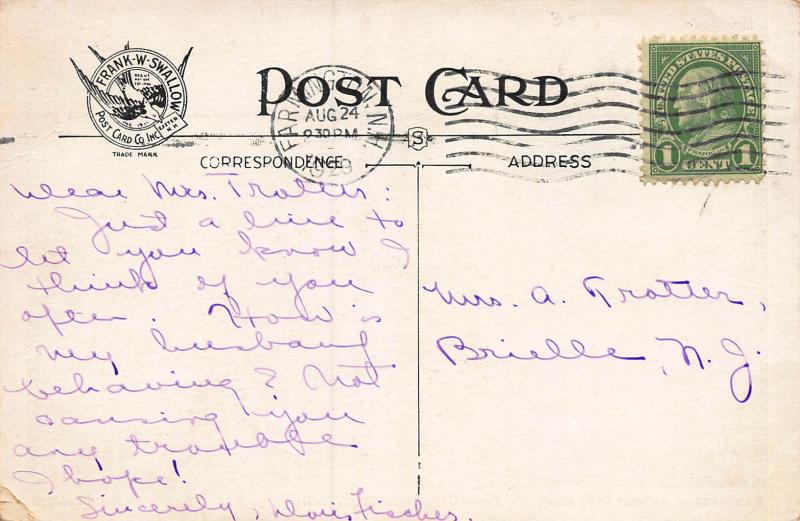 FRANK·W·SWALLOW
POST CARD CO INC.
EXETER N.H.
TRADE MARK
POST CARD
FARMINGTON N.H.
AUG 24
9 30 PM
1929
UNITED STATES POSTAGE
FRANKLIN
1 CENT 1
S
CORRESPONDENCE
ADDRESS
Dear Mrs. Trotter:
Just a line to
let you know I
think of you
often. How is
my husband
behaving? Not
causing you
any trouble
I hope!
Sincerely, Doris Fischer.
Mrs. A. Trotter,
Brielle, N. J.